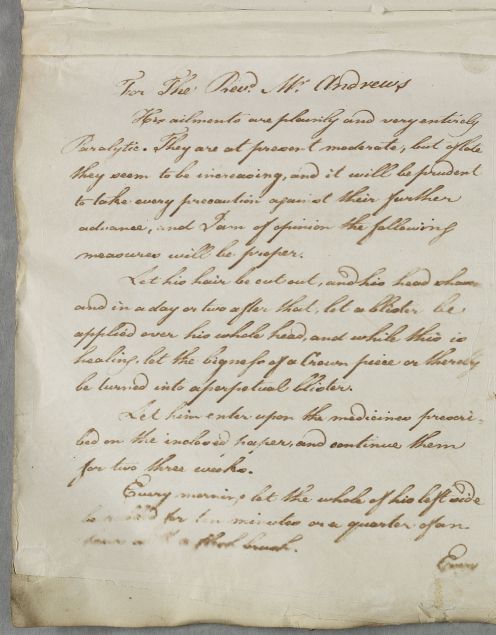 For The Revd. Mr. Andrews
His ailments are plainly and very entirely
Paralytic. They are at present moderate, but of late
they seem to be increasing, and it will be prudent
to take every precaution against their further
advance, and I am of opinion the following
measures will be proper.
Let his hair be cut out, and his head
and in a day or two after that, let a blister be
applied over his whole head, and while this is
healing, let the bigness of a Crown piece or thereby
be turned into a perpetual blister.
Let him enter upon the medicines prescri-
bed on the inclosed paper, and continue them
for two three weeks.
Every morning let the whole of his left side
be rubbed for ten minutes or a quarter of an
a flesh brush.
Every